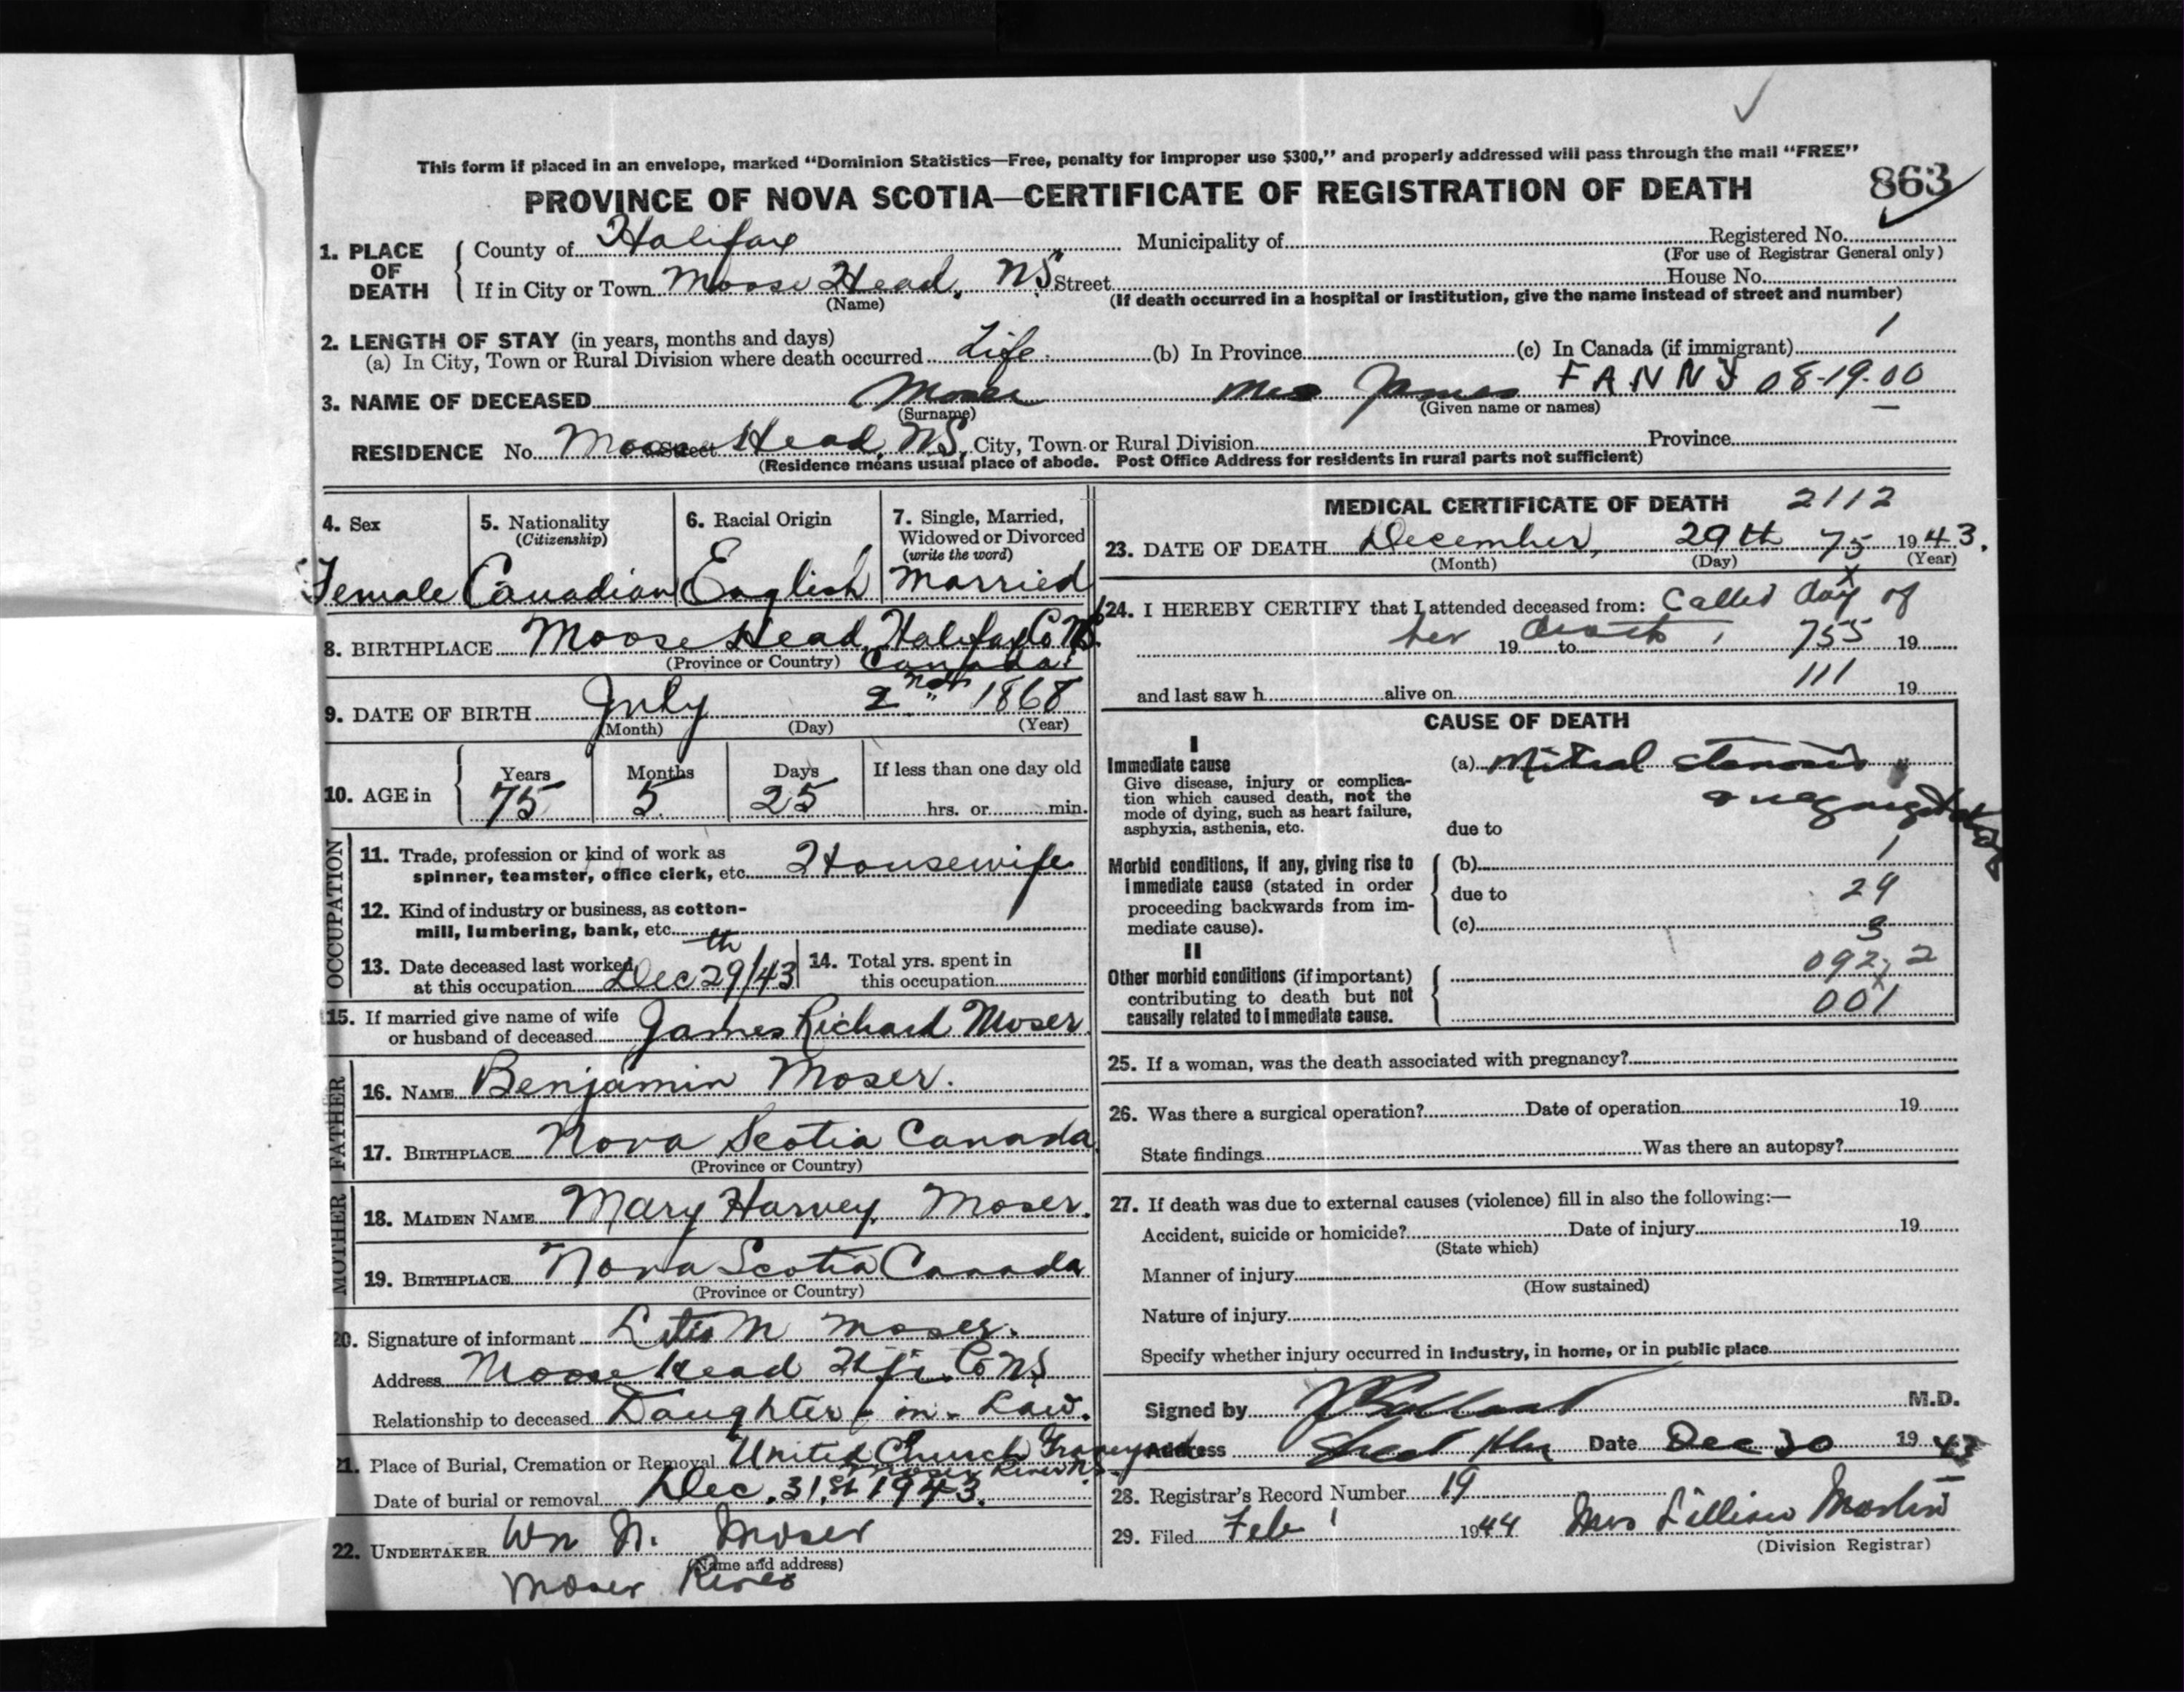 This form if placed in an envelope, marked “Dominion Statistics—Free, penalty for improper use $300,” and properly addressed will pass through the mail “FREE”
PROVINCE OF NOVA SCOTIA—CERTIFICATE OF REGISTRATION OF DEATH 863
1. PLACE OF DEATH County of Halifax Municipality of Registered No.
(For use of Registrar General only)
If in City or Town Moose Head, NS. Street House No.
(Name) (If death occurred in a hospital or institution, give the name instead of street and number)
2. LENGTH OF STAY (in years, months and days) 1
(a) In City, Town or Rural Division where death occurred Life. (b) In Province (c) In Canada (if immigrant)
3. NAME OF DECEASED Moser Mrs James FANNY 08-19-00
(Surname) (Given name or names)
RESIDENCE No. Moose Street Head, N.S. City, Town or Rural Division Province
(Residence means usual place of abode. Post Office Address for residents in rural parts not sufficient)
4. Sex 5. Nationality (Citizenship) 6. Racial Origin 7. Single, Married, Widowed or Divorced (write the word)
Female Canadian English Married
8. BIRTHPLACE Moose Head, Halifax Co N.S.
(Province or Country) Canada.
9. DATE OF BIRTH July 2nd 1868
(Month) (Day) (Year)
10. AGE in Years Months Days If less than one day old
75 5 25 hrs. or min.
OCCUPATION
11. Trade, profession or kind of work as spinner, teamster, office clerk, etc. Housewife
12. Kind of industry or business, as cotton-mill, lumbering, bank, etc.
13. Date deceased last worked at this occupation Dec 29th/43
14. Total yrs. spent in this occupation
15. If married give name of wife or husband of deceased James Richard Moser.
FATHER
16. NAME Benjamin Moser.
17. BIRTHPLACE Nova Scotia Canada
(Province or Country)
MOTHER
18. MAIDEN NAME Mary Harvey, Moser.
19. BIRTHPLACE Nova Scotia Canada
(Province or Country)
20. Signature of informant M Moser.
Address Moose Head Hfx. Co NS
Relationship to deceased Daughter-in-Law.
21. Place of Burial, Cremation or Removal United Church Graveyard
Moser River NS.
Date of burial or removal Dec. 31st 1943.
22. UNDERTAKER Wm N. Moser
(Name and address)
Moser River
MEDICAL CERTIFICATE OF DEATH 2112
23. DATE OF DEATH December, 29th 75 1943.
(Month) (Day) (Year)
24. I HEREBY CERTIFY that I attended deceased from: Called day of
her 19 death to 755 19
111
and last saw h alive on 19
CAUSE OF DEATH
I
Immediate cause
Give disease, injury or complication which caused death, not the mode of dying, such as heart failure, asphyxia, asthenia, etc.
(a) Mitral stenosis
& regurgitation
due to
Morbid conditions, if any, giving rise to immediate cause (stated in order proceeding backwards from immediate cause).
(b) 1
due to 24
(c) 3
II
Other morbid conditions (if important) contributing to death but not causally related to immediate cause.
092,2
001
25. If a woman, was the death associated with pregnancy?
26. Was there a surgical operation? Date of operation 19
State findings Was there an autopsy?
27. If death was due to external causes (violence) fill in also the following:—
Accident, suicide or homicide? Date of injury 19
(State which)
Manner of injury
(How sustained)
Nature of injury
Specify whether injury occurred in industry, in home, or in public place
Signed by M.D.
Address Date Dec 30 1943
28. Registrar's Record Number 19
29. Filed Feb 1 1944 Mrs Lillian
(Division Registrar)